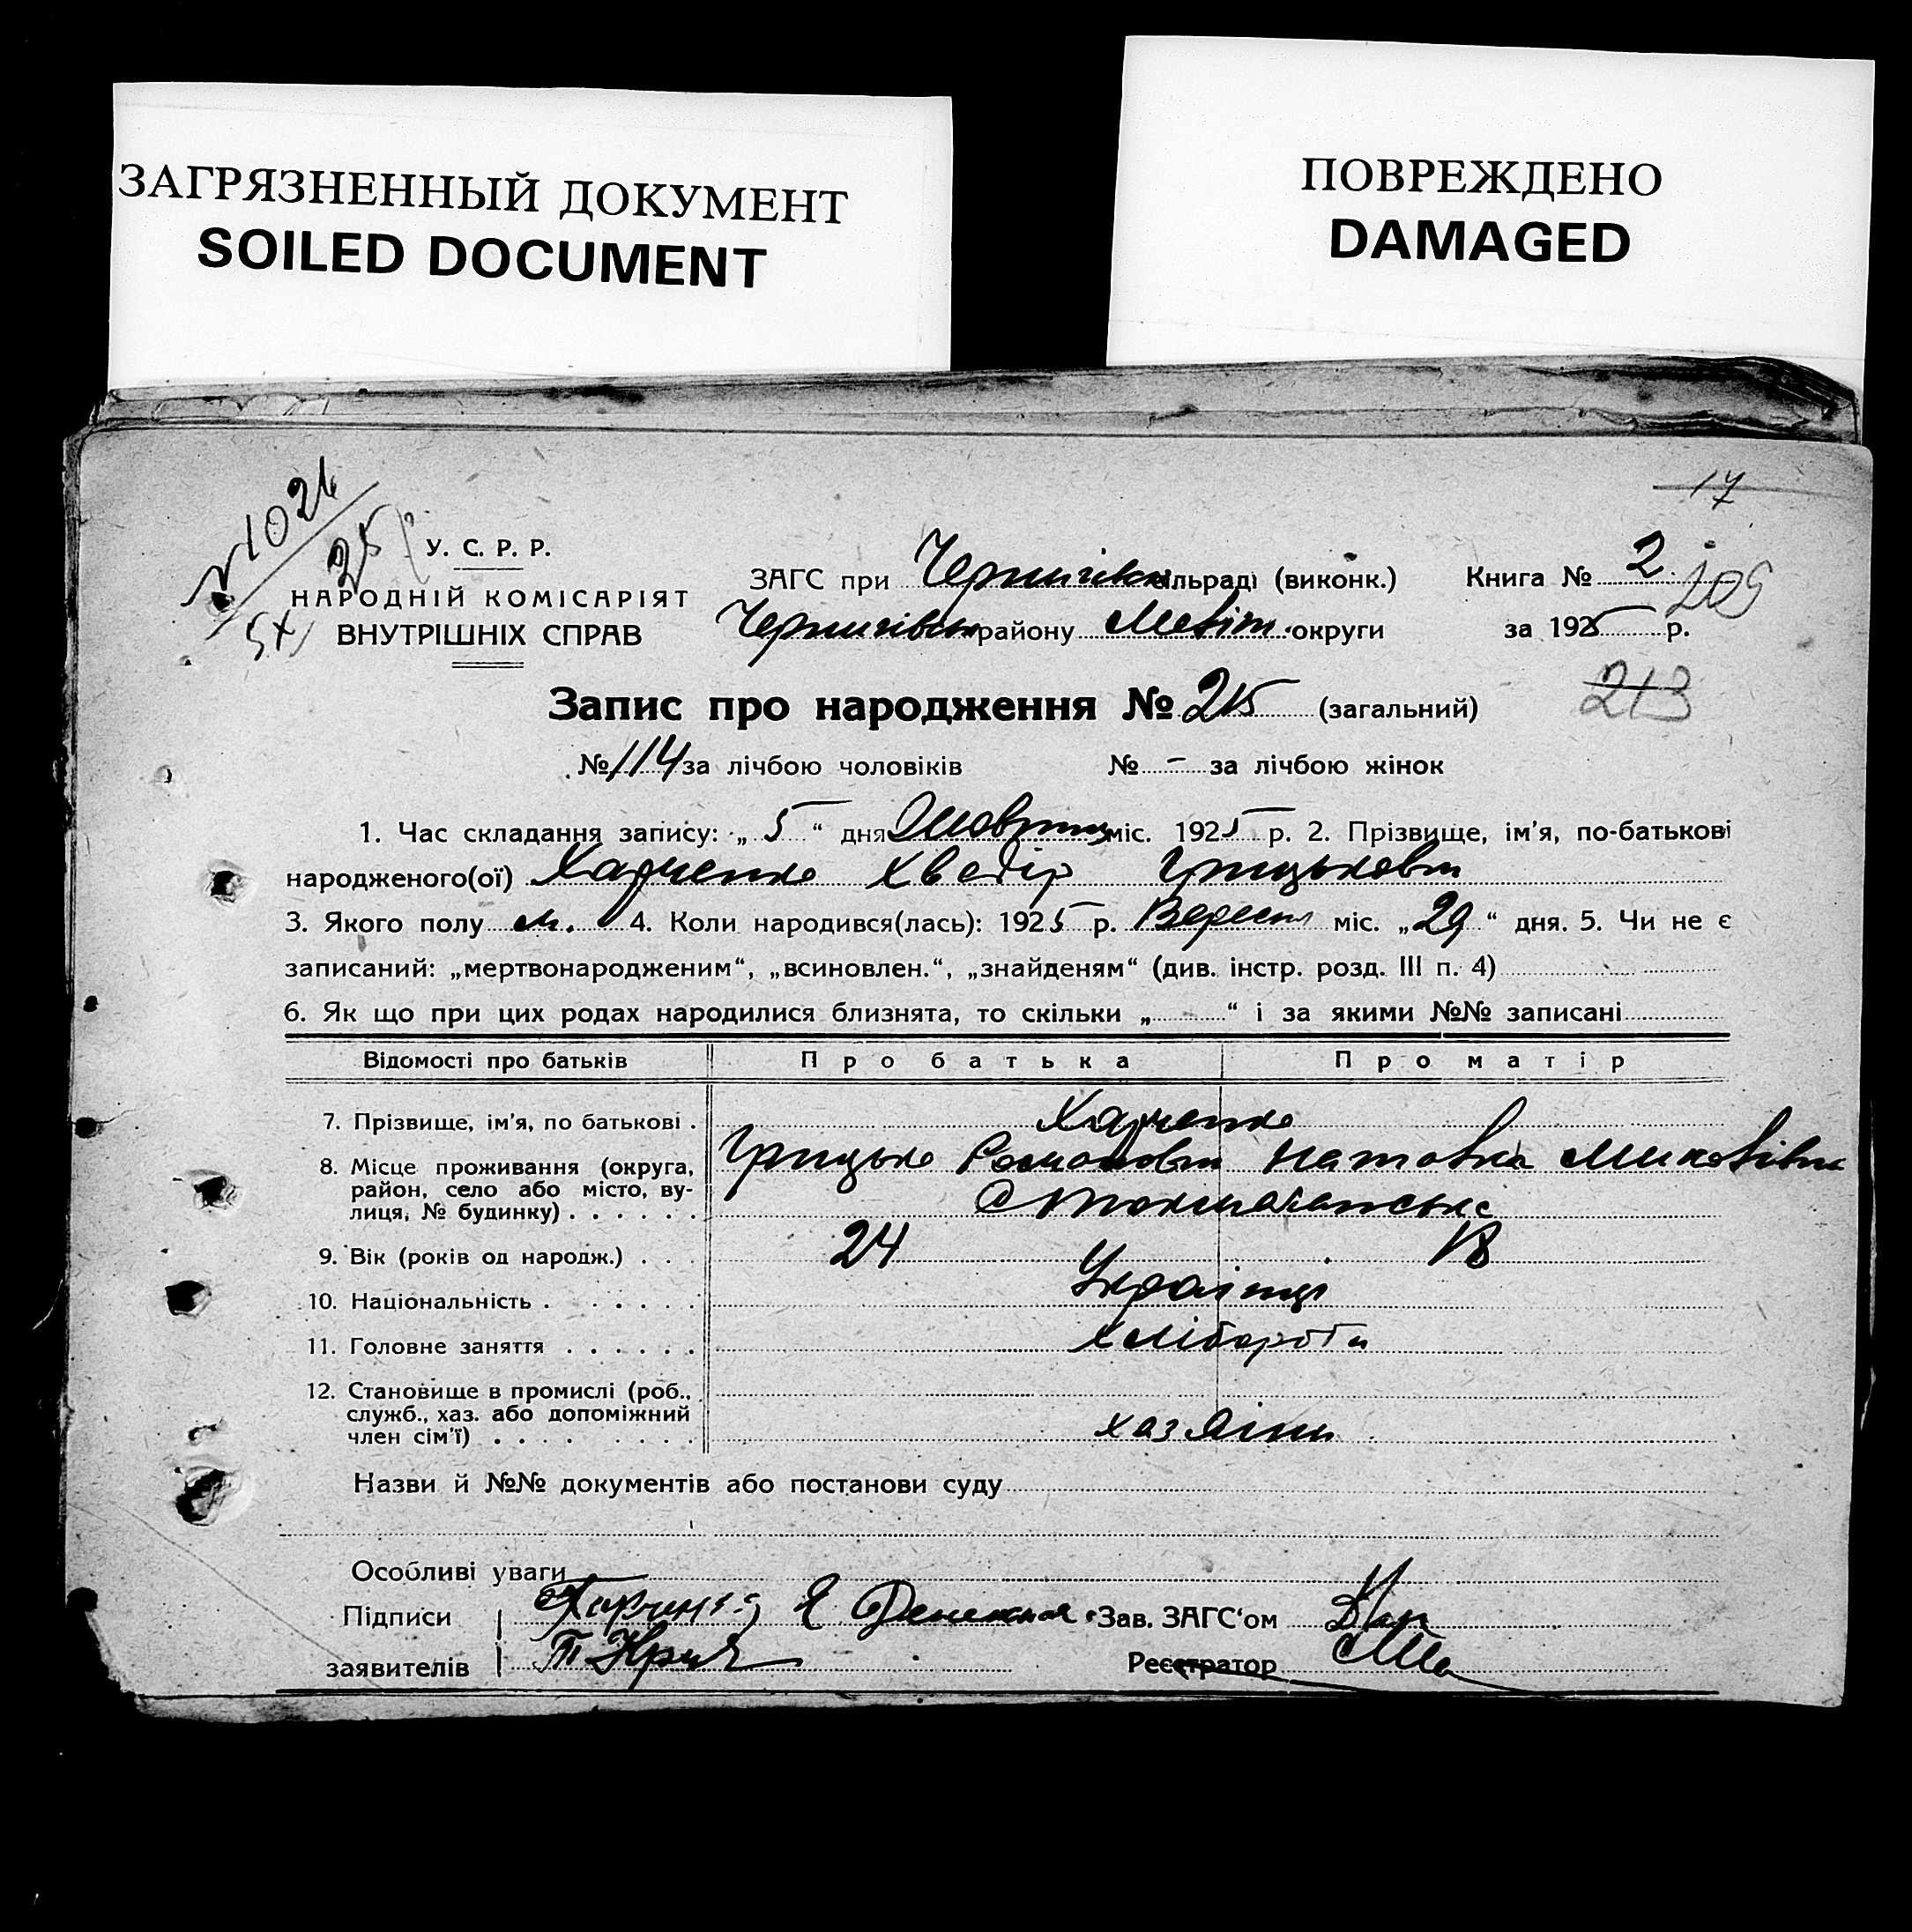 ЗАГРЯЗНЕННЫЙ ДОКУМЕНТ
SOILED DOCUMENT
ПОВРЕЖДЕНО
DAMAGED
17
У. С. Р. Р.
НАРОДНІЙ КОМІСАРІЯТ
ВНУТРІШНІХ СПРАВ
ЗАГС при Чернигівськ сільраді (виконк.)
Чернигівськ району Меліт. округи
Книга № 2
205
за 1925 р.
Запис про народження № 215 (загальний)
213
№ 114 за лічбою чоловіків № - за лічбою жінок
1. Час складання запису: „ 5 “ дня Жовтня міс. 1925 р. 2. Прізвище, ім'я, по-батькові
народженого(ої) Харченко Хведір Грицькович
3. Якого полу м. 4. Коли народився(лась): 1925 р. Вересня міс. „29“ дня. 5. Чи не є
записаний: „мертвонародженим“, „всиновлен.“, „знайденям“ (див. інстр. розд. III п. 4)
6. Як що при цих родах народилися близнята, то скільки „ “ і за якими №№ записані
Відомості про батьків Про батька Про матір
7. Прізвище, ім'я, по батькові . Харченко
Грицько Романович
8. Місце проживання (округа,
район, село або місто, ву-
лиця, № будинку) . . . . . .
9. Вік (років од народж.) . . . 24 18
10. Національність . . . . . . . Українці
11. Головне заняття . . . . . . хлібороби
12. Становище в промислі (роб.,
служб., хаз. або допоміжний
член сім'ї) . . . . . . . . . хазяїни
Назви й №№ документів або постанови суду
Особливі уваги
Підписи Зав. ЗАГС'ом
заявителів Реєстратор